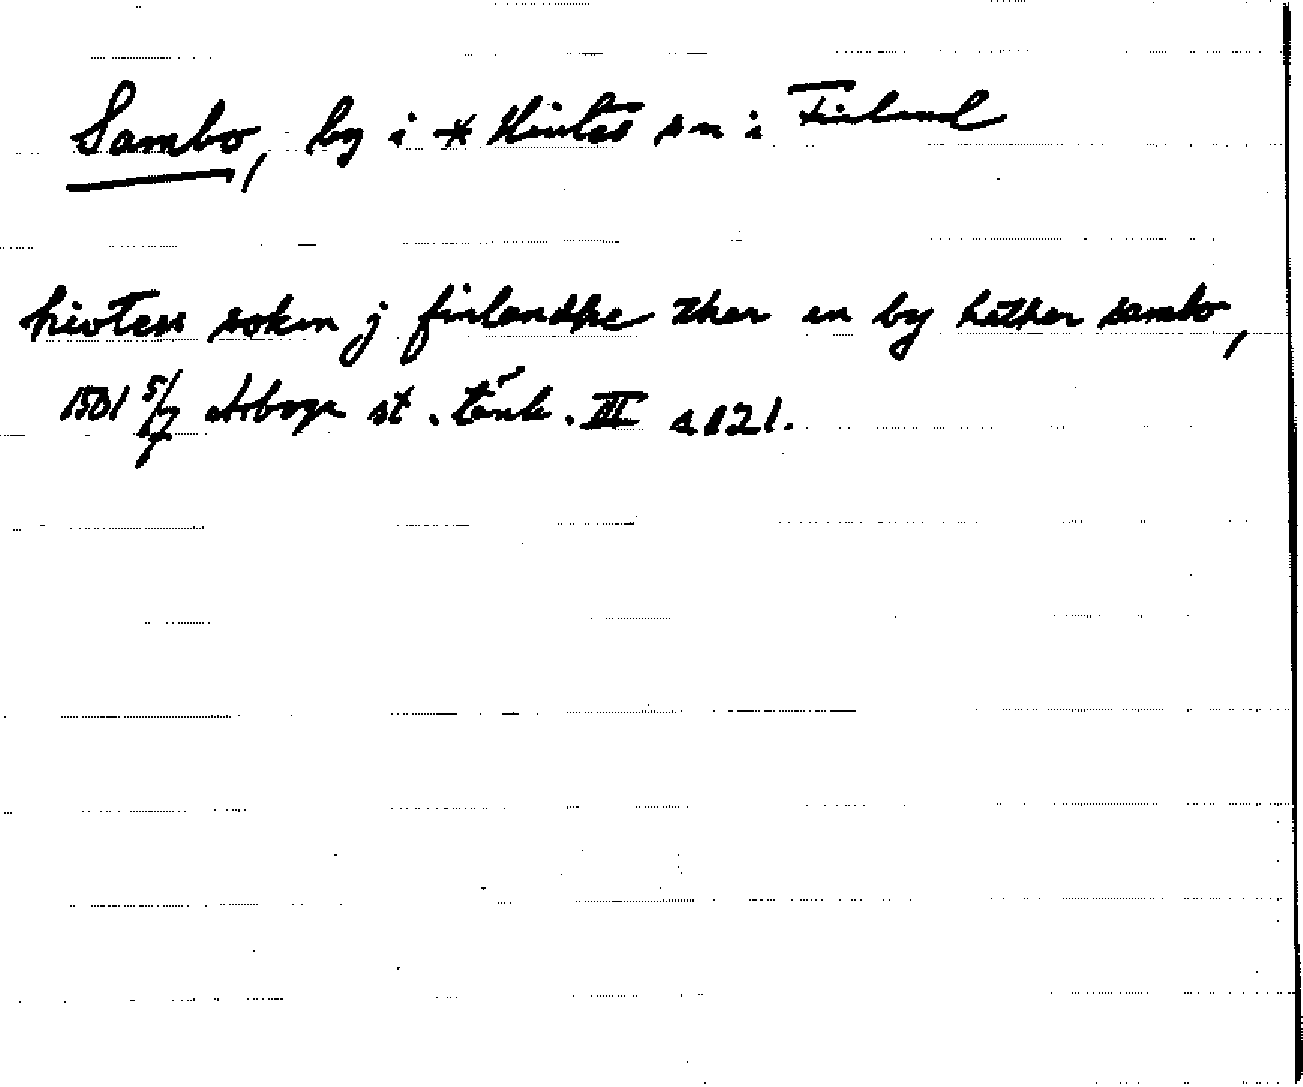 Sambo, by i * Hivtes sn i Finland
hivtess sokn j finlandhe ther en by hether sambo,
1501 5/7 Arboga st. tänk. III s 121.